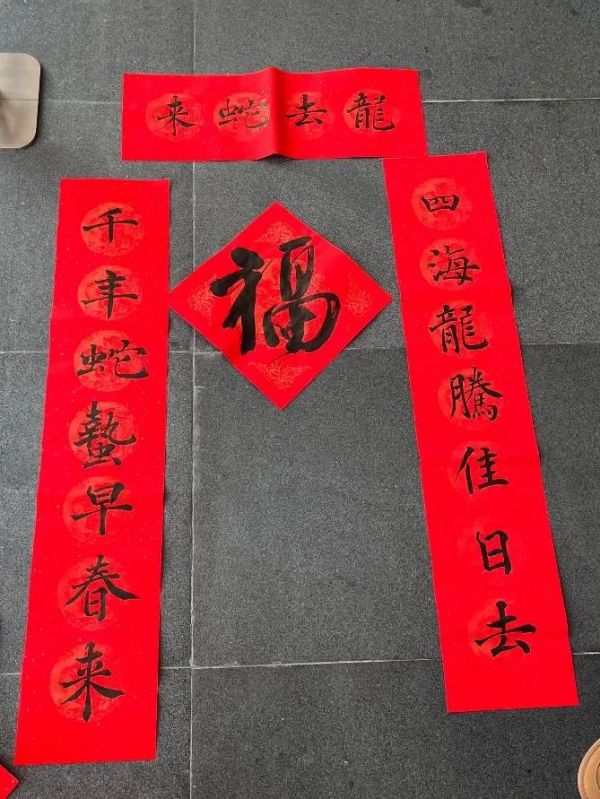 龍去蛇来
四海龍騰佳日去
千年蛇蟄早春来
福